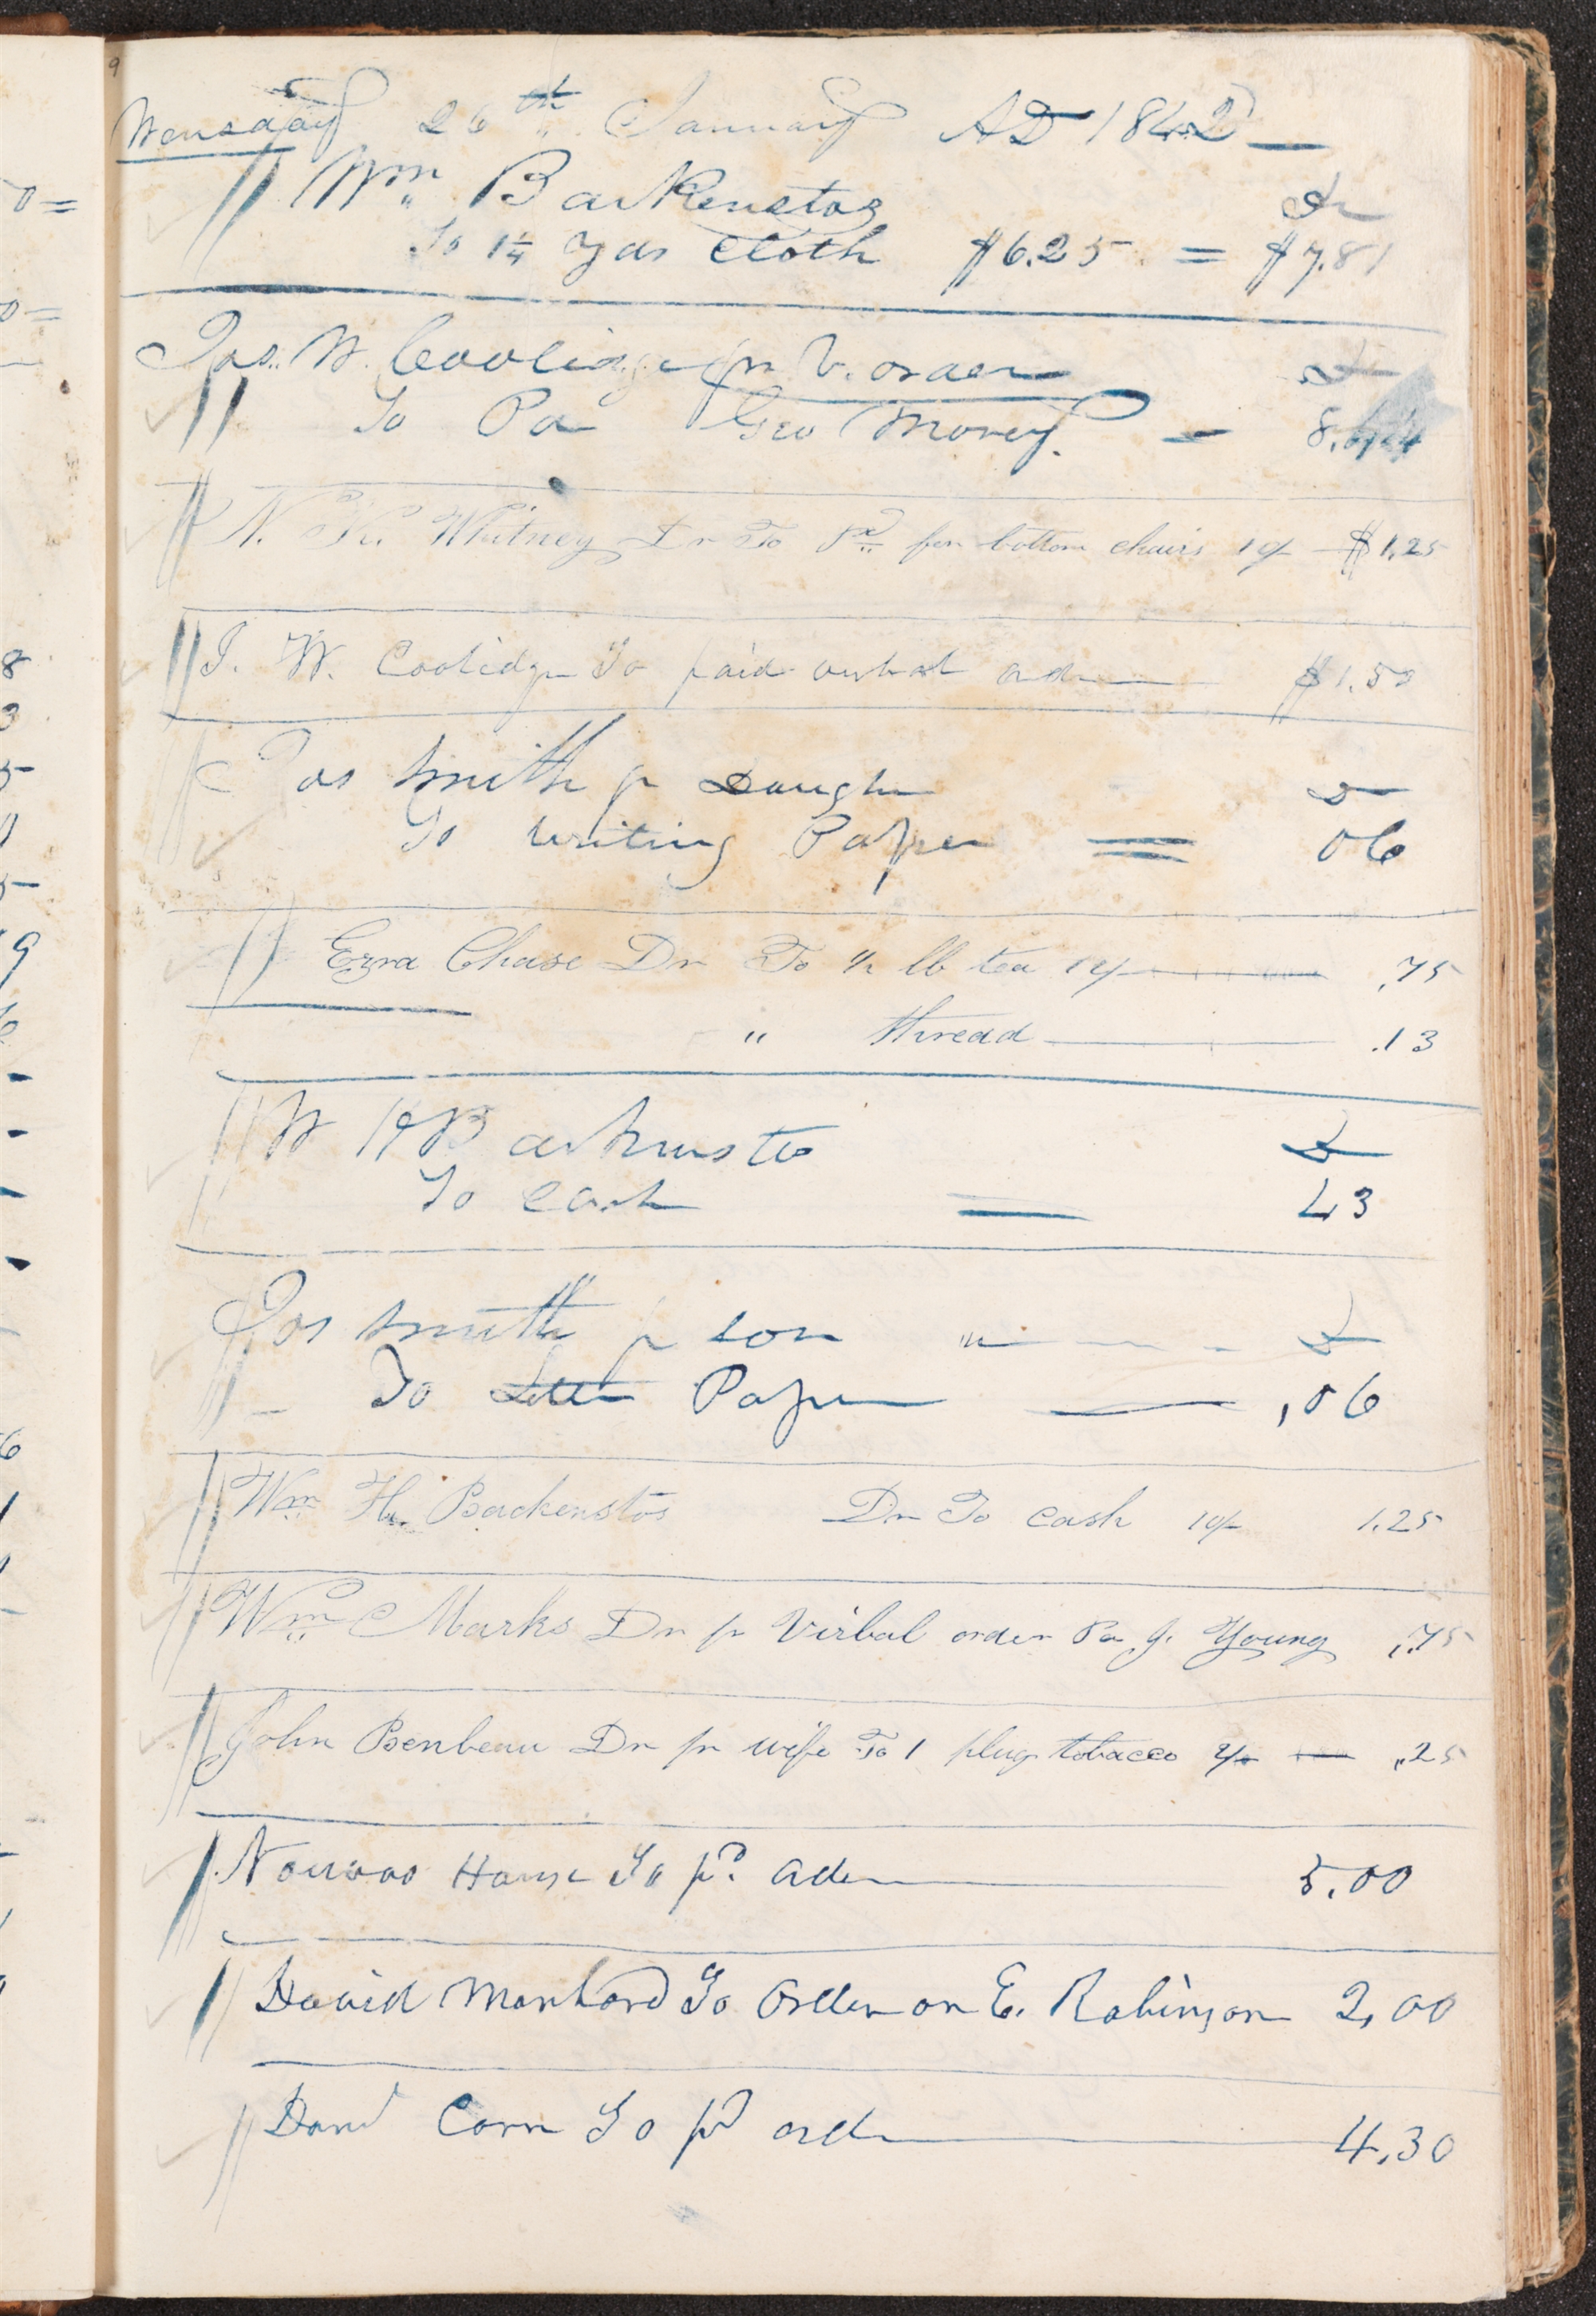 9
Wensday 26th January AD 1842
Wm Backenstos Dr
To 1 1/4 yds Cloth $6.25 = $7.81
Jos. W. Coolidge pr v. order Dr
To Pa Geo Morey. 8.
N. K. Whitney Dr To pd for bottom chairs 10/ $1.25
J. W. Coolidge To paid verbal order $1.50
Jos Smith pr Daughter Dr
To Writing Paper = 06
Ezra Chase Dr To 1/2 lb tea 12/ .75
" thread .13
W H Backenstos Dr
To Cash = 43
Jos Smith pr son " Dr
To Letter Paper ,06
Wm H. Backenstos Dr To Cash 10/ 1.25
Wm Marks Dr pr Virbal order Pa J. Young ,75
John Benbeau Dr pr wife To 1 plug tobacco 2/ ,25
Nauvoo House To pd order 5.00
David Manhard To Order on E. Robinson 2,00
Danl Carn To pd order 4.30
8
3
5
9
6